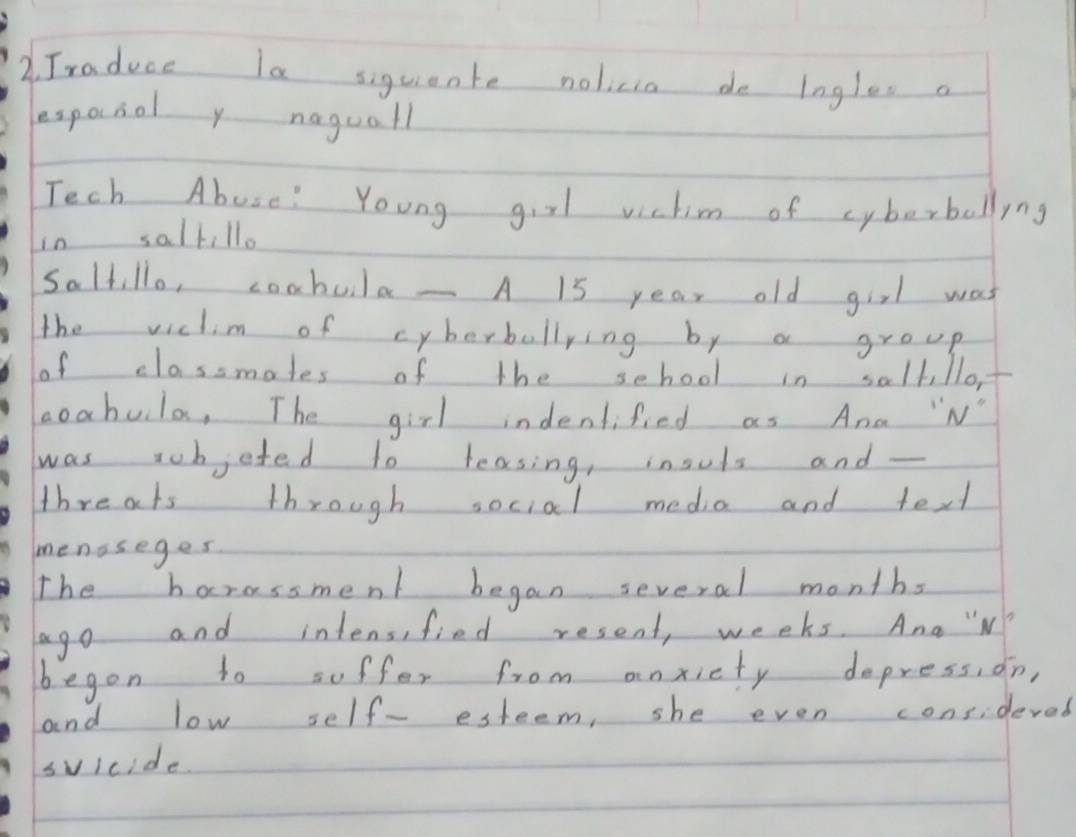 2. Traduce la siguiente noticia de Ingles a
español y naguatl
Tech Abuse: Young girl victim of cyberbullying
in saltillo
Saltillo, coahuila — A 15 year old girl was
the victim of cyberbullying by a group
of classmates of the school in saltillo, —
coahuila. The girl indentified as Ana "N"
was subjeted to teasing, insuls and —
threats through social media and text
mensseges.
The harassment began several months
ago and intensified resent, weeks. Ana "N"
began to suffer from anxiety depression,
and low self- esteem, she even considered
suicide.